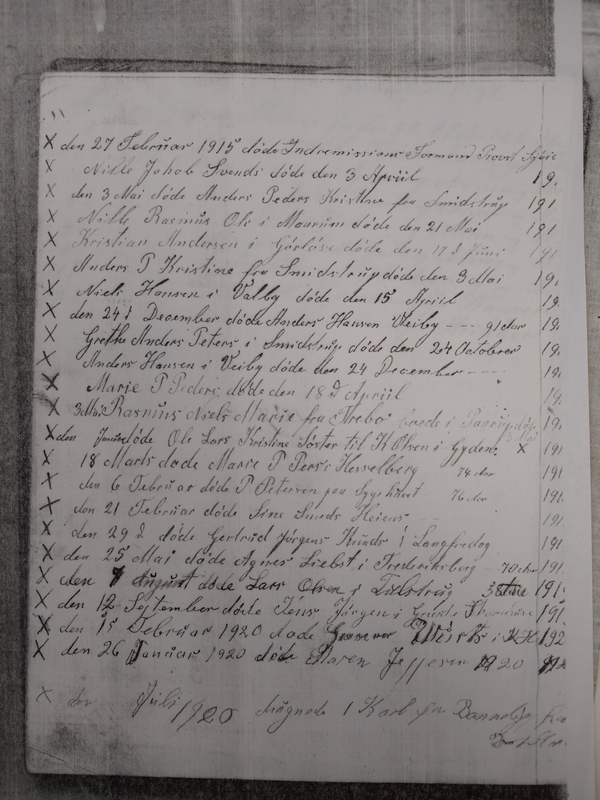 X den 27 Februar 1915 døde Indremissions Formand Provst
X Nille Jakob Svends døde den 3 Apriil 19.
X den 3 Mai døde Anders Peders Kristine fra Smidstrup 191
X Nille Rasmus Ols i Maarum døde den 21 Mai 191
X Kristian Andersen i Görlöse döde den 17 d Juni 191
X Anders P Kristine fra Smidstrup døde den 3 Mai 19.
X Niels Hansen i Valby døde den 15 Apriil 19.
X den 24 d December døde Anders Hansen Veiby --- 91 Aar 19.
X Grethe Anders Peters i Smidstrup døde den 24 Octobrer 19.
X Anders Hansen i Veiby døde den 24 December --- 19.
X Marie P Peders, døde den 18 d Apriil 19.
X 3 Mai Rasmus Niels Marie fra Trebo i 19.
X den døde Ole Lars Kristine Søster til K Olsen i Gyden. X 191
X 18 Marts døde Marie P Pers's Hesselberg 74 Aar 191
X den 6 Februar døde P Petersen fra 76 Aar 191.
X den 21 Februar døde Sine Smeds 191.
X den 29 d døde Gertrud Jörgens i Langfredag 191
X den 25 Mai døde Agnes i Frederiksborg - 70 Aar 191.
X den August døde Lars Olsen i 191.
X den 12 September døde Jens Jörgen i 191.
X den 15 Februar 1920 døde i 192
X den 26 Januar 1920 døde Maren Jeppesen 1920
X den Juli 1920 1 Karl fra